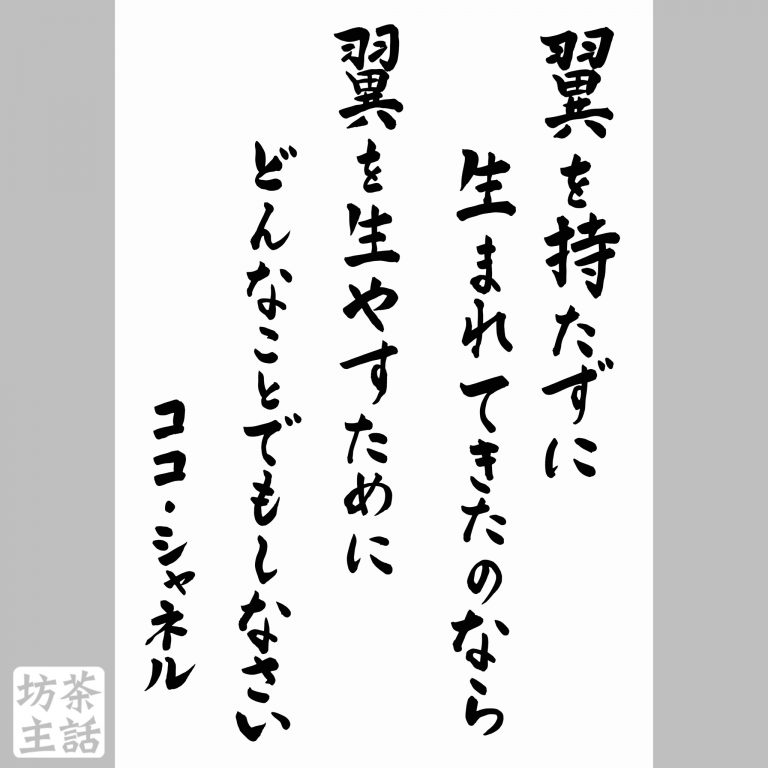 翼を持たずに
生まれてきたのなら
翼を生やすために
どんなことでもしなさい
ココ・シャネル
茶話
坊主